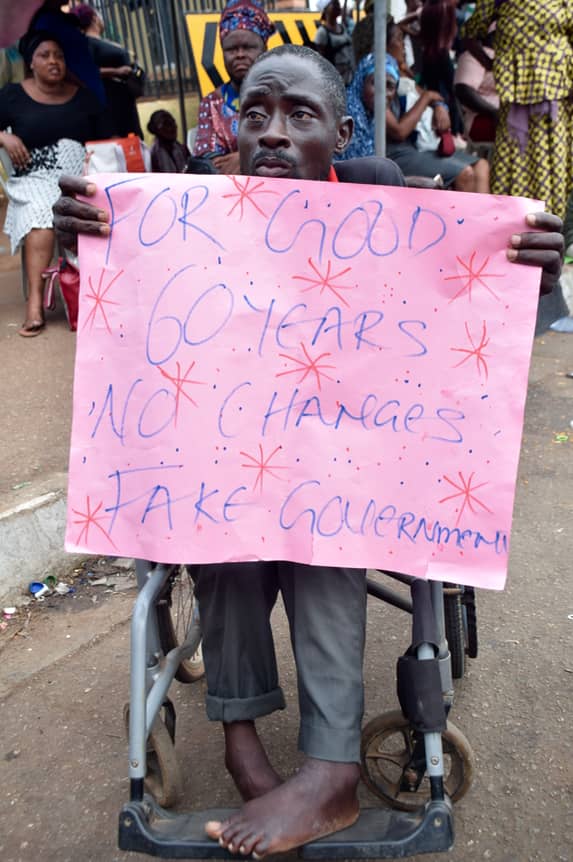 FOR GOOD
60 YEARS
NO CHANGES
FAKE GOVERNMENT